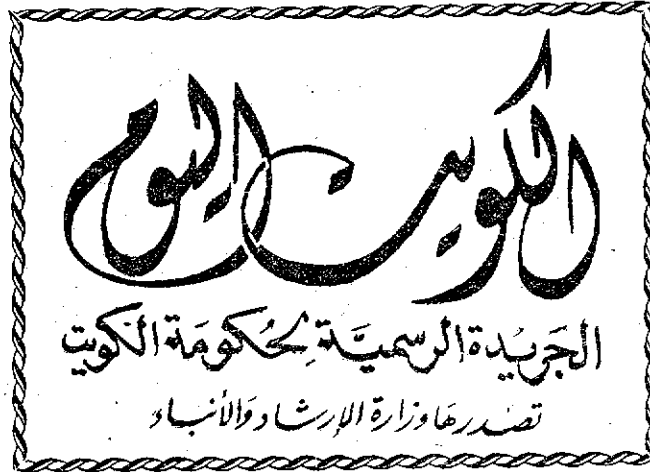 الكويت اليوم
الجَريْدة الرسميَّة لِحُكومَة الكويت
تصْدرهَا وزارة الإرشاد وَالأنبَاء